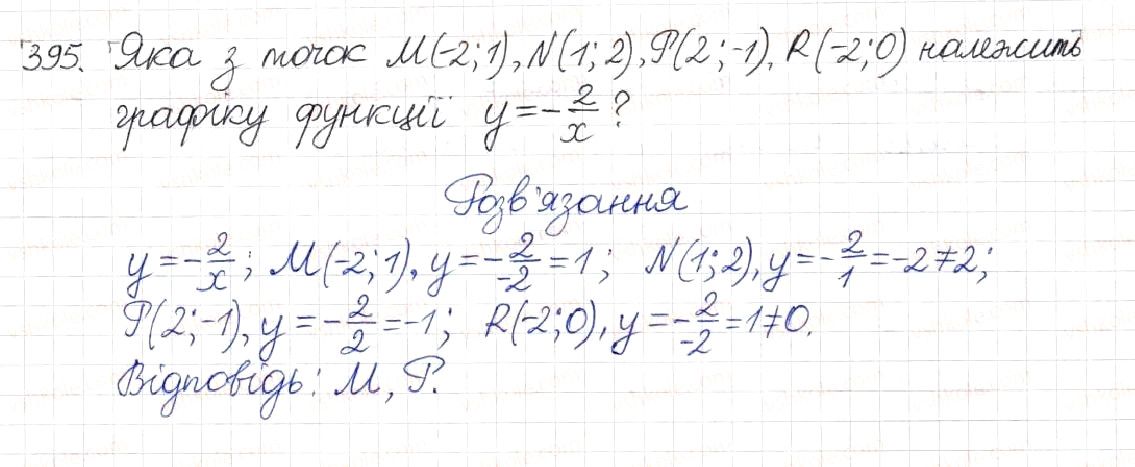 395. Яка з точок M(-2;1), N(1;2), P(2;-1), R(-2;0) належить
графіку функції y=-2/x?
Розв'язання
y=-2/x; M(-2;1), y=-2/-2=1; N(1;2), y=-2/1=-2≠2;
P(2;-1), y=-2/2=-1; R(-2;0), y=-2/-2=1≠0.
Відповідь: M, P.